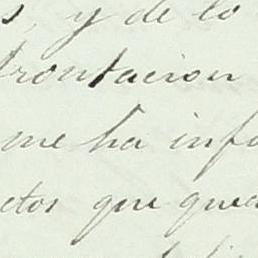 s, y de lo
frontacion
me ha info
ctos que qued